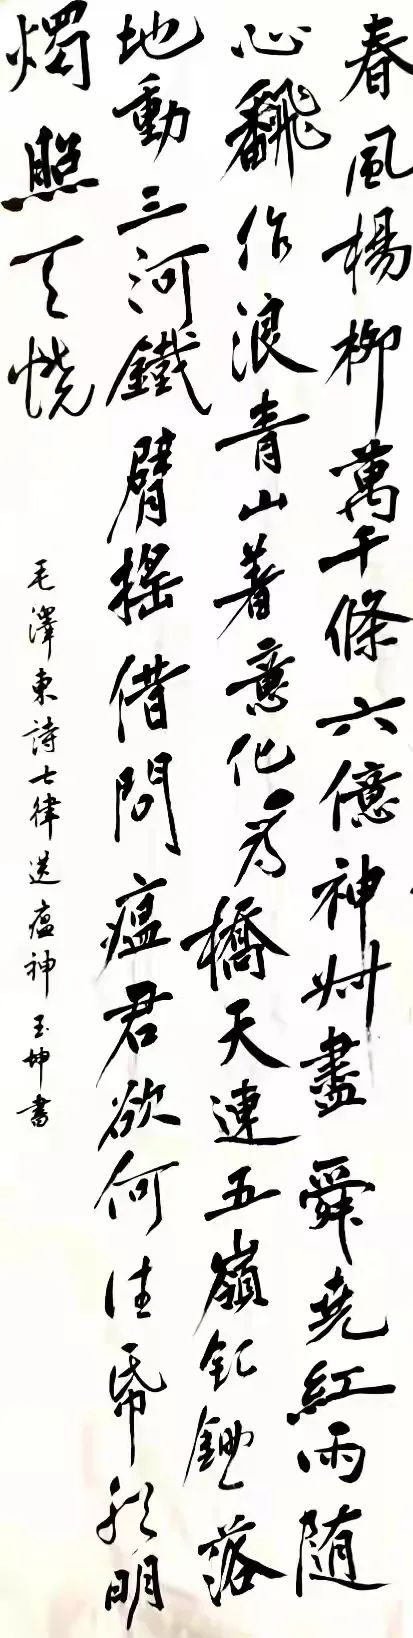 春風楊柳萬千條六億神州盡舜堯紅雨随
心飜作浪青山著意化為橋天連五嶺銀鋤落
地動三河鐵臂搖借問瘟君欲何往帋船明
燭照天燒
毛澤東詩七律送瘟神 玉坤書